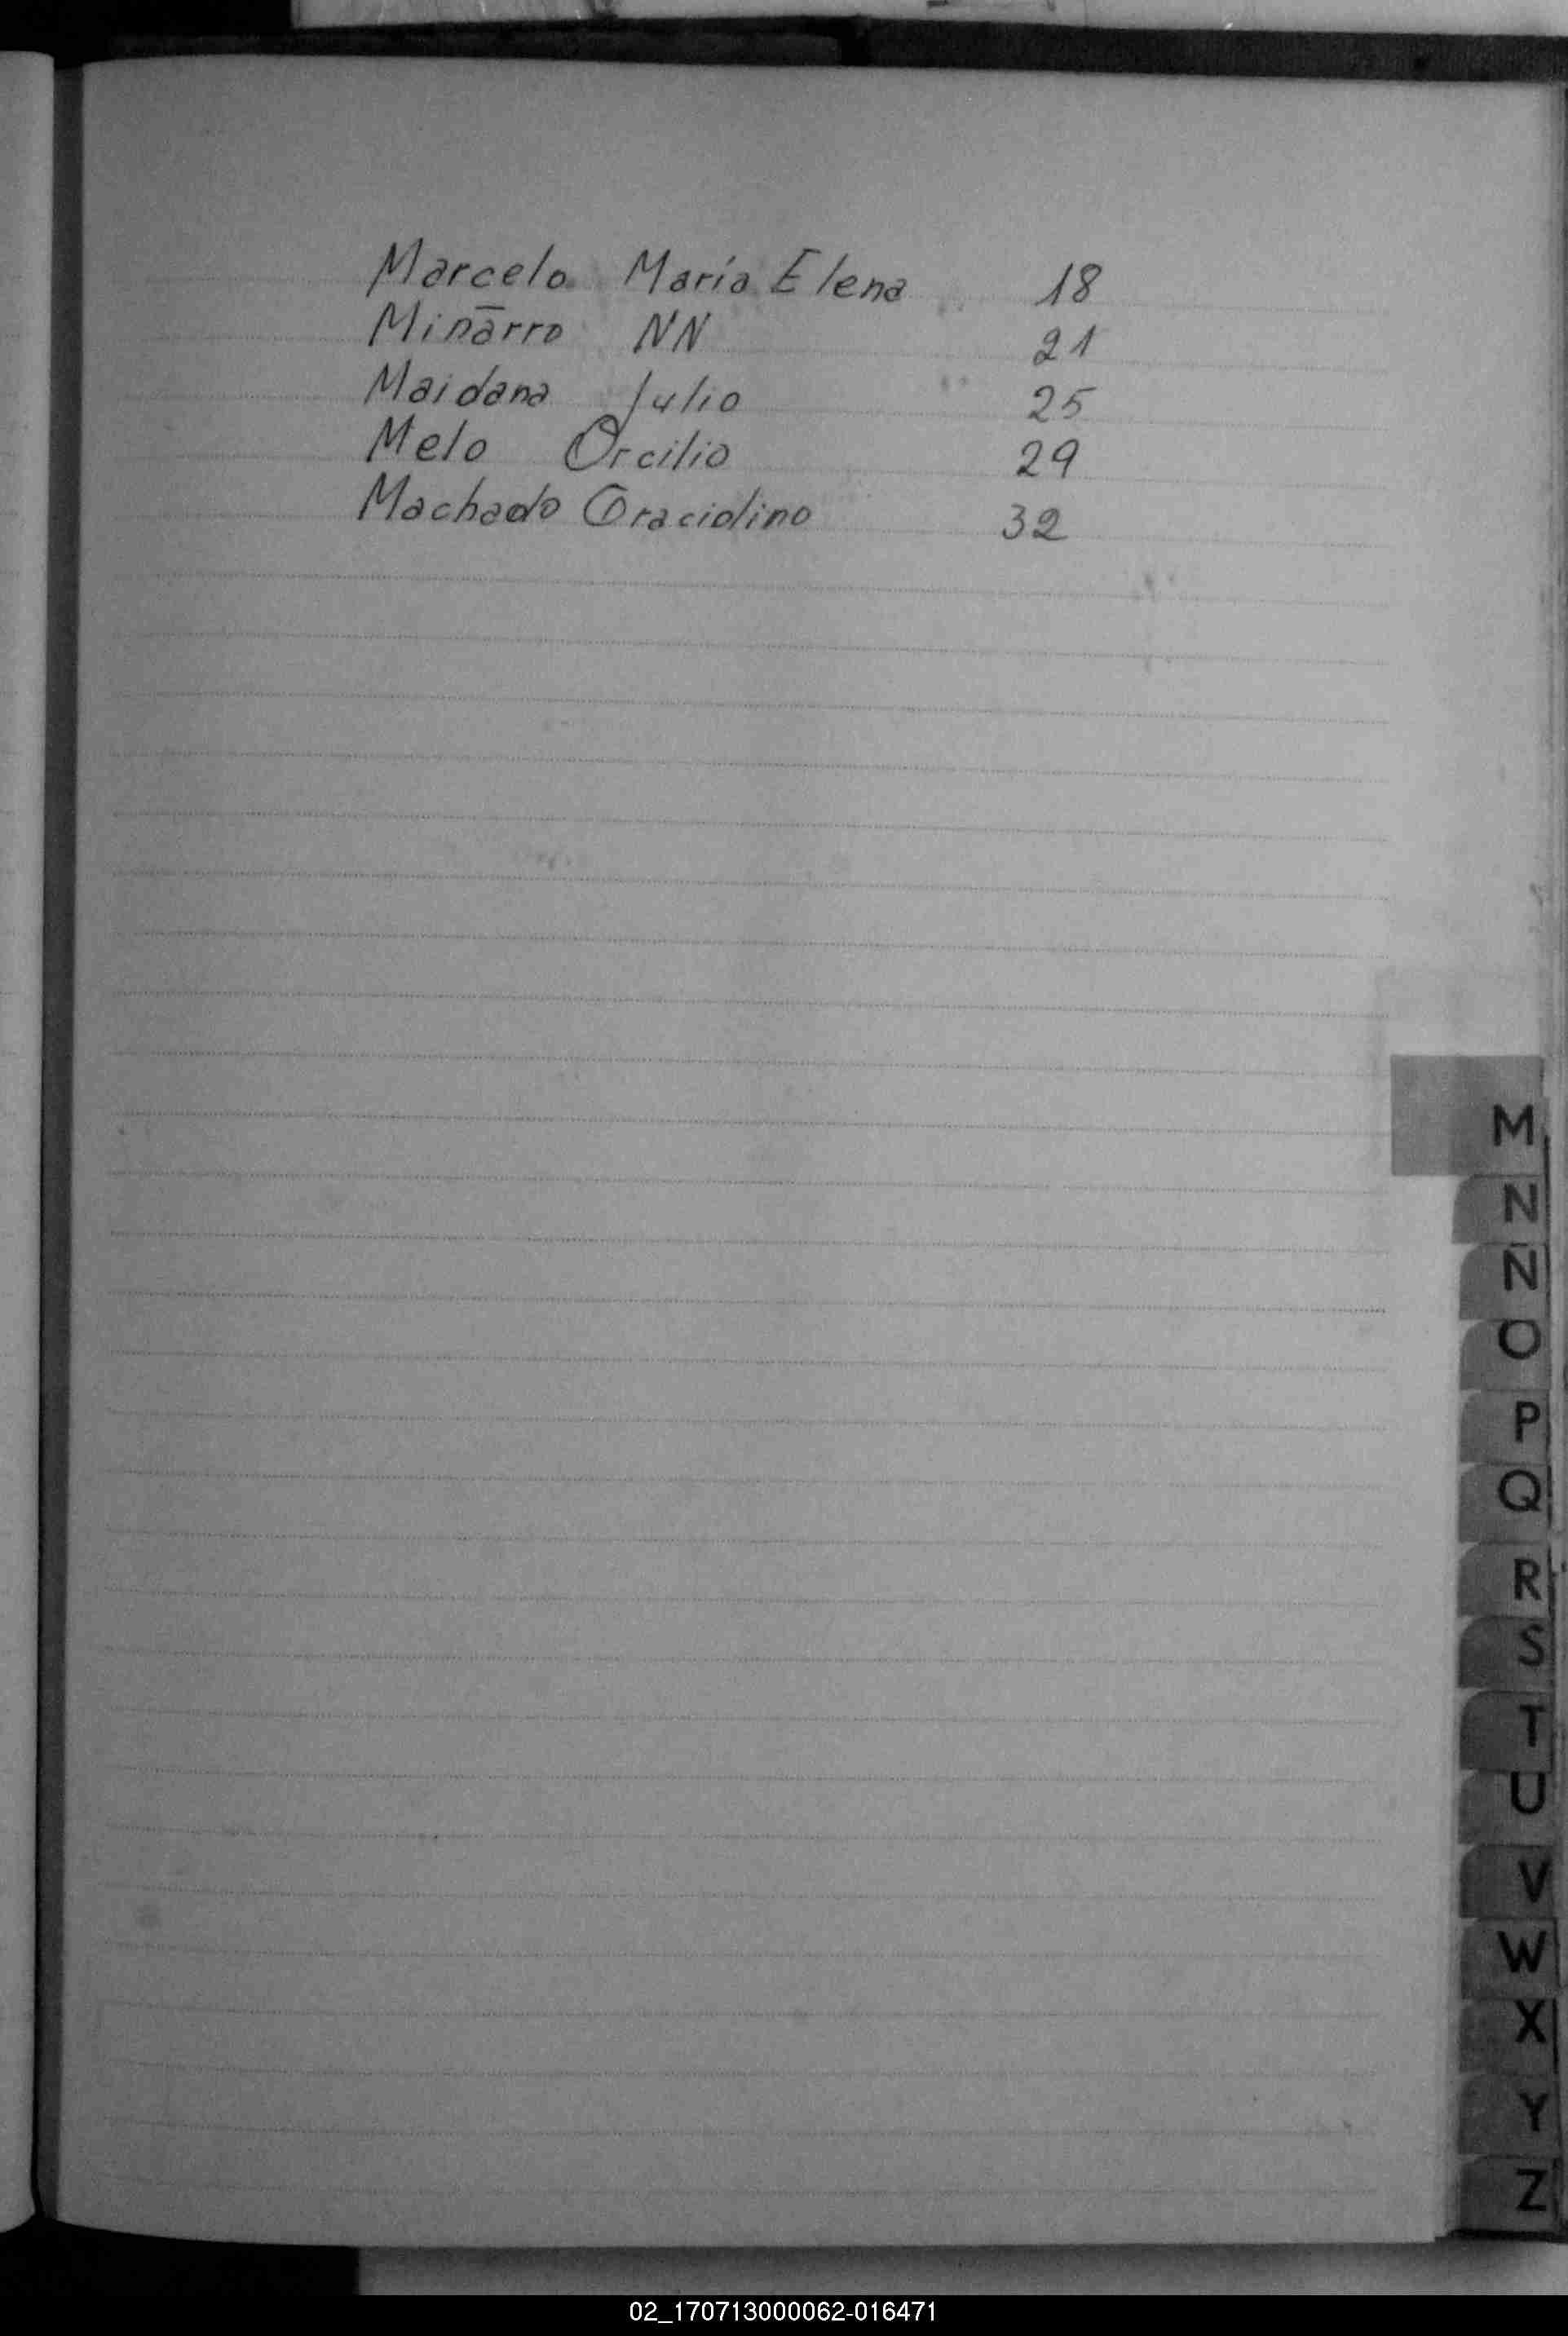 Marcelo María Elena 18
Miñarro NN 21
Maidana Julio 25
Melo Orcilio 29
Machado Graciolino 32
M
N
Ñ
O
P
Q
R
S
T
U
V
W
X
Y
Z
02_170713000062-016471